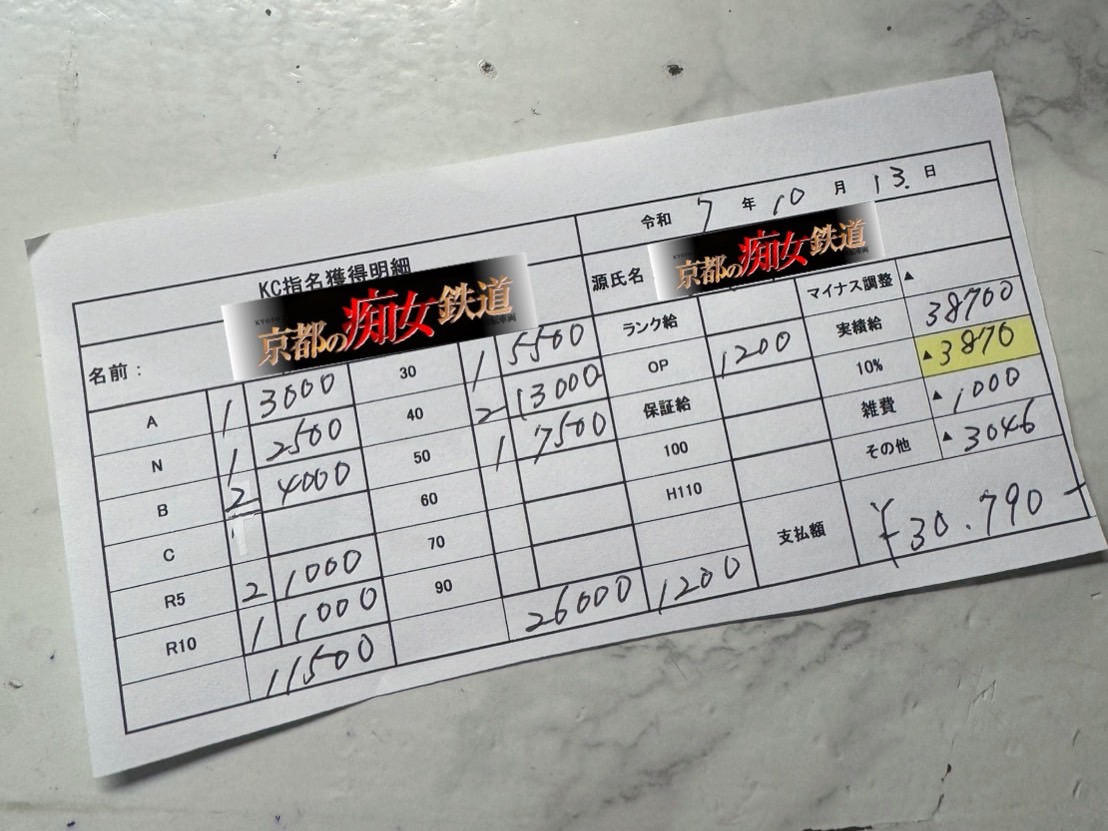 令和 7 年 10 月 13. 日
KC指名獲得明細
源氏名
京都の痴女鉄道
マイナス調整 ▲
名前：
京都の痴女鉄道
A 1 3000 30 1 5500 ランク給 実績給 38700
N 1 2500 40 2 13000 OP 1200 10% ▲3870
B 2 4000 50 1 7500 保証給 雑費 ▲1000
C 60 100 その他 ▲3046
R5 2 1000 70 H110 支払額 ¥30.790
R10 1 1000 90
11500 26000 1200